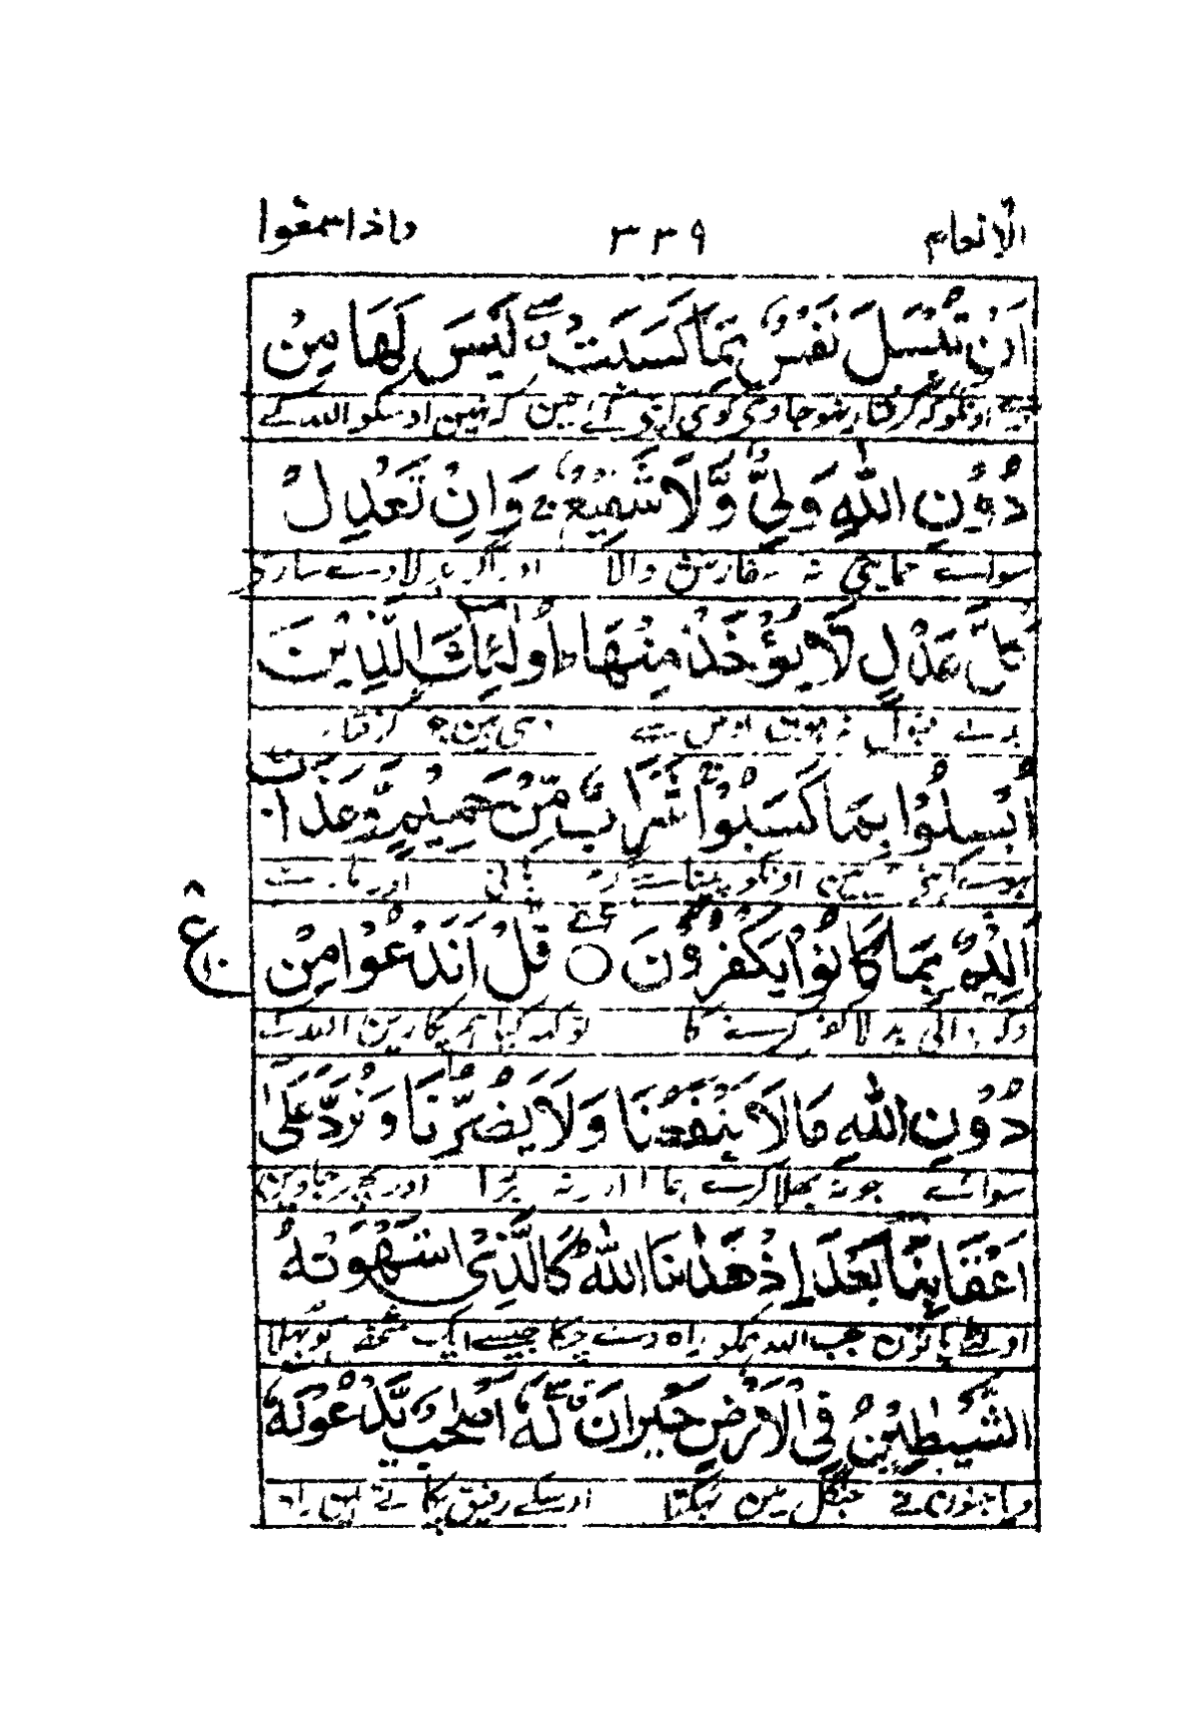 الانعام ٣٣٩ واذا سمعوا
اَنْ تُبْسَلَ نَفْسٌۢ بِمَا كَسَبَتْ لَيْسَ لَهَا مِنْ
کہ گرفتار نہو جاوی کوئی اپنی کئے مین کہ نہین اوسکو اللہ کے
دُوْنِ اللّٰهِ وَلِيٌّ وَّلَا شَفِيْعٌ ۚ وَاِنْ تَعْدِلْ
سواے حمایتی نہ سفارش والا اور اگر بدلا دے سارے
كُلَّ عَدْلٍ لَّا يُؤْخَذْ مِنْهَا ؕ اُولٰٓئِكَ الَّذِيْنَ
بدلے قبول نہ ہووے اوس سے وہی ہین جو گرفتار
اُبْسِلُوْا بِمَا كَسَبُوْا ۚ شَرَابٌ مِّنْ حَمِيْمٍ وَّعَذَابٌ
اونکو پینا ہے پانی اور مار ہے
اَلِيْمٌۢ بِمَا كَانُوْا يَكْفُرُوْنَ ○ قُلْ اَنَدْعُوْا مِنْ
ع
بدلا کفر کرنے کا تو کہہ کیا ہم پکارین اللہ کے
دُوْنِ اللّٰهِ مَا لَا يَنْفَعُنَا وَلَا يَضُرُّنَا وَنُرَدُّ عَلٰٓى
سواے جو نہ بھلا کرے ہمارا اور نہ برا اور پھر جاوین
اَعْقَابِنَا بَعْدَ اِذْ هَدٰىنَا اللّٰهُ كَالَّذِى اسْتَهْوَتْهُ
اولٹے پانون جب اللہ ہمکو راہ دے چکا جیسے ایک شخص کو بھلا
الشَّيٰطِيْنُ فِى الْاَرْضِ حَيْرَانَ لَهٗٓ اَصْحٰبٌ يَّدْعُوْنَهٗٓ
جنگل مین بہکتا اوسکے رفیق پکارتے ہین راہ